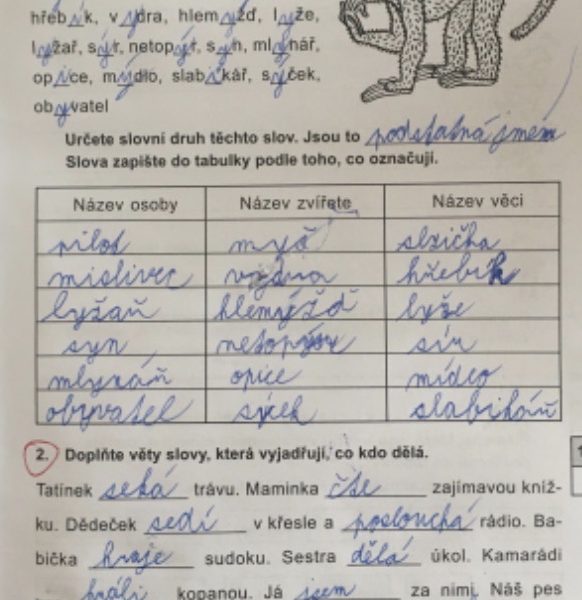 hřebík, v ydra, hlemýžď, lyže,
lyžař, sýr, netopýr, syn, mlynář,
opice, mýdlo, slabikář, sýček,
obyvatel
Určete slovní druh těchto slov. Jsou to podstatná jmén
Slova zapište do tabulky podle toho, co označují.
Název osoby Název zvířete Název věci
pilot myš slzička
mislivec vydra hřebík
lyžař hlemýžď lyže
syn netopýr sír
mlynář opice mídlo
obyvatel sýček slabikář
2. Doplňte věty slovy, která vyjadřují, co kdo dělá.
Tatínek seká trávu. Maminka čte zajímavou kníž-
ku. Dědeček sedí v křesle a poslouchá rádio. Ba-
bička hraje sudoku. Sestra dělá úkol. Kamarádi
hráli kopanou. Já jsem za nimi. Náš pes